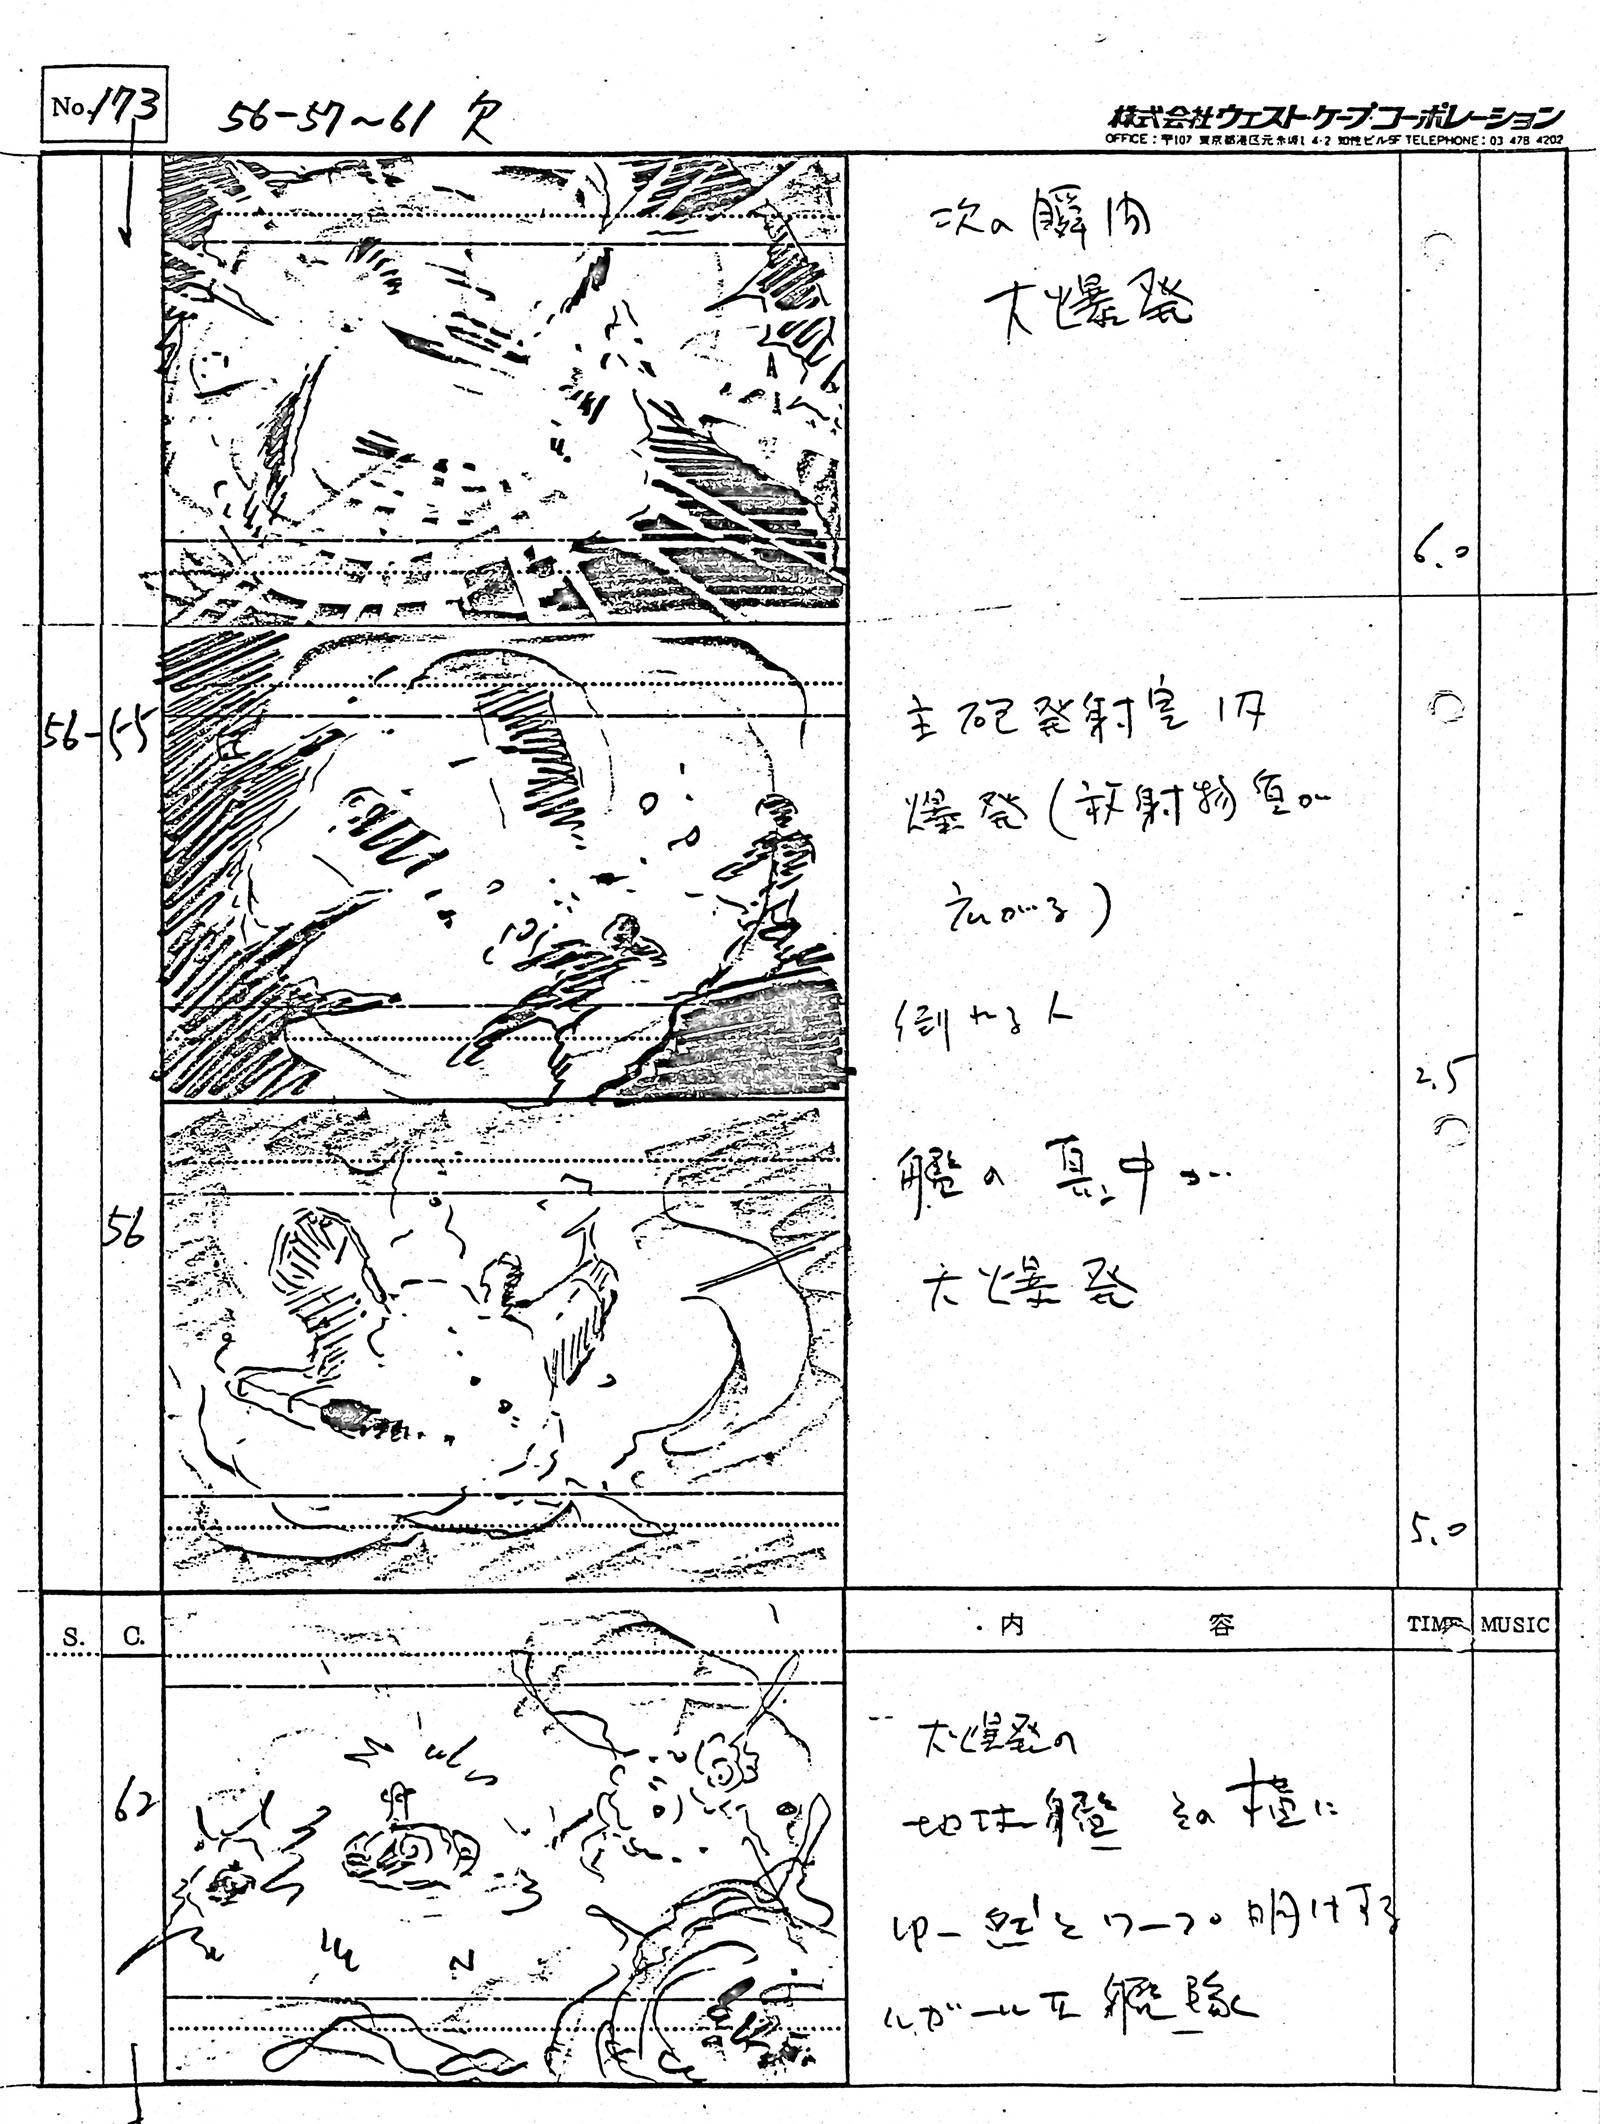 No. 173
56-57~61 欠
株式会社ウェスト・ケープ・コーポレーション
OFFICE：〒107 東京都港区元赤坂1 4-2 知性ビル5F TELEPHONE：03 478 4202
次の瞬間
大爆発
6.0
56-55
主砲発射室内
爆発(放射物質が
広がる)
倒れる人
2.5
56
艦の真中が
大爆発
5.0
S. C. 内 容 TIME MUSIC
62
大爆発の
地球艦 その横に
ゆー然とワープ明けする
ルガールII艦隊